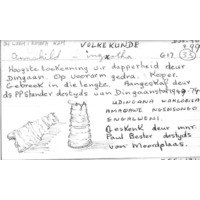 VOLKEKUNDE
299
Armskild - ingxotha G17. 33
Hoogste toekenning vir dapperheid deur
Dingaan. Op voorarm gedra. Koper.
Gebreek in die lengte. Aangeskaf deur
ds PPStander destyds van Dingaanstat
UDINGANA WAHLABISA
AMABAWE NGENSONGO
ENGALWENI.
Geskenk deur mnr.
Paul Bester destyds
van Moordplaas.